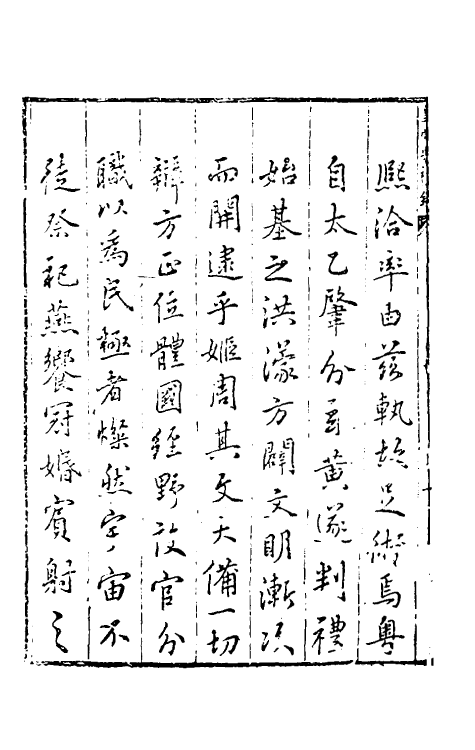 熙洽率由茲執故足術焉粵
自太乙肇分玄黃遂判禮
始基之洪濛方闢文明漸次
而開逮乎姬周其文大備一切
辨方正位體國經野設官分
職以為民極者燦然宇宙不
徒祭祀燕饗冠婚賓射之